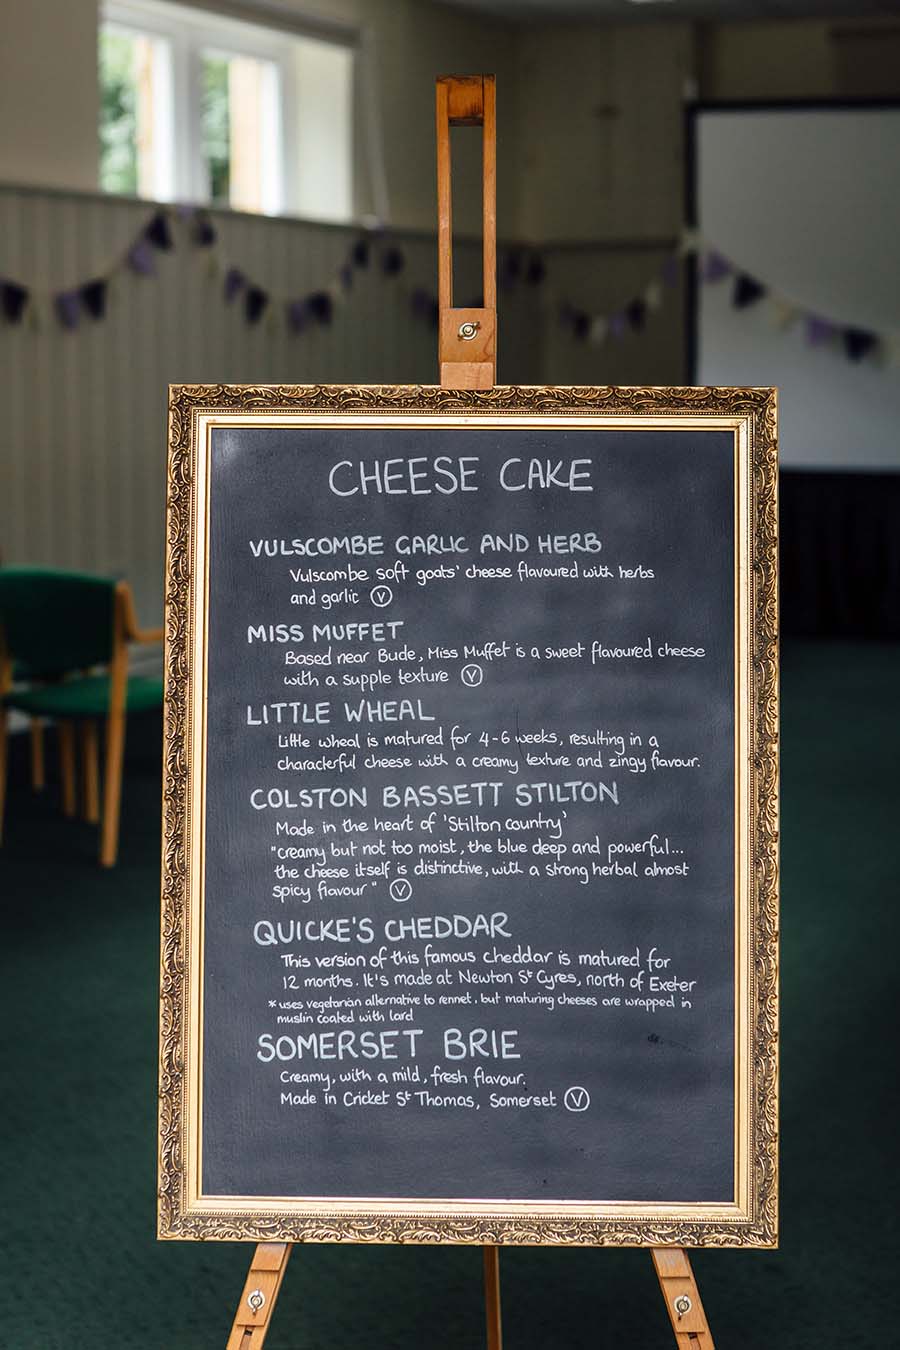 CHEESE CAKE
VULSCOMBE GARLIC AND HERB
Vulscombe soft goats' cheese flavoured with herbs
and garlic Ⓥ
MISS MUFFET
Based near Bude, Miss Muffet is a sweet flavoured cheese
with a supple texture Ⓥ
LITTLE WHEAL
Little wheal is matured for 4-6 weeks, resulting in a
characterful cheese with a creamy texture and zingy flavour.
COLSTON BASSETT STILTON
Made in the heart of 'Stilton country'
"creamy but not too moist, the blue deep and powerful...
the cheese itself is distinctive, with a strong herbal almost
spicy flavour" Ⓥ
QUICKE'S CHEDDAR
This version of this famous cheddar is matured for
12 months. It's made at Newton St Cyres, north of Exeter
* uses vegetarian alternative to rennet, but maturing cheeses are wrapped in
muslin coated with lard
SOMERSET BRIE
Creamy, with a mild, fresh flavour.
Made in Cricket St Thomas, Somerset Ⓥ